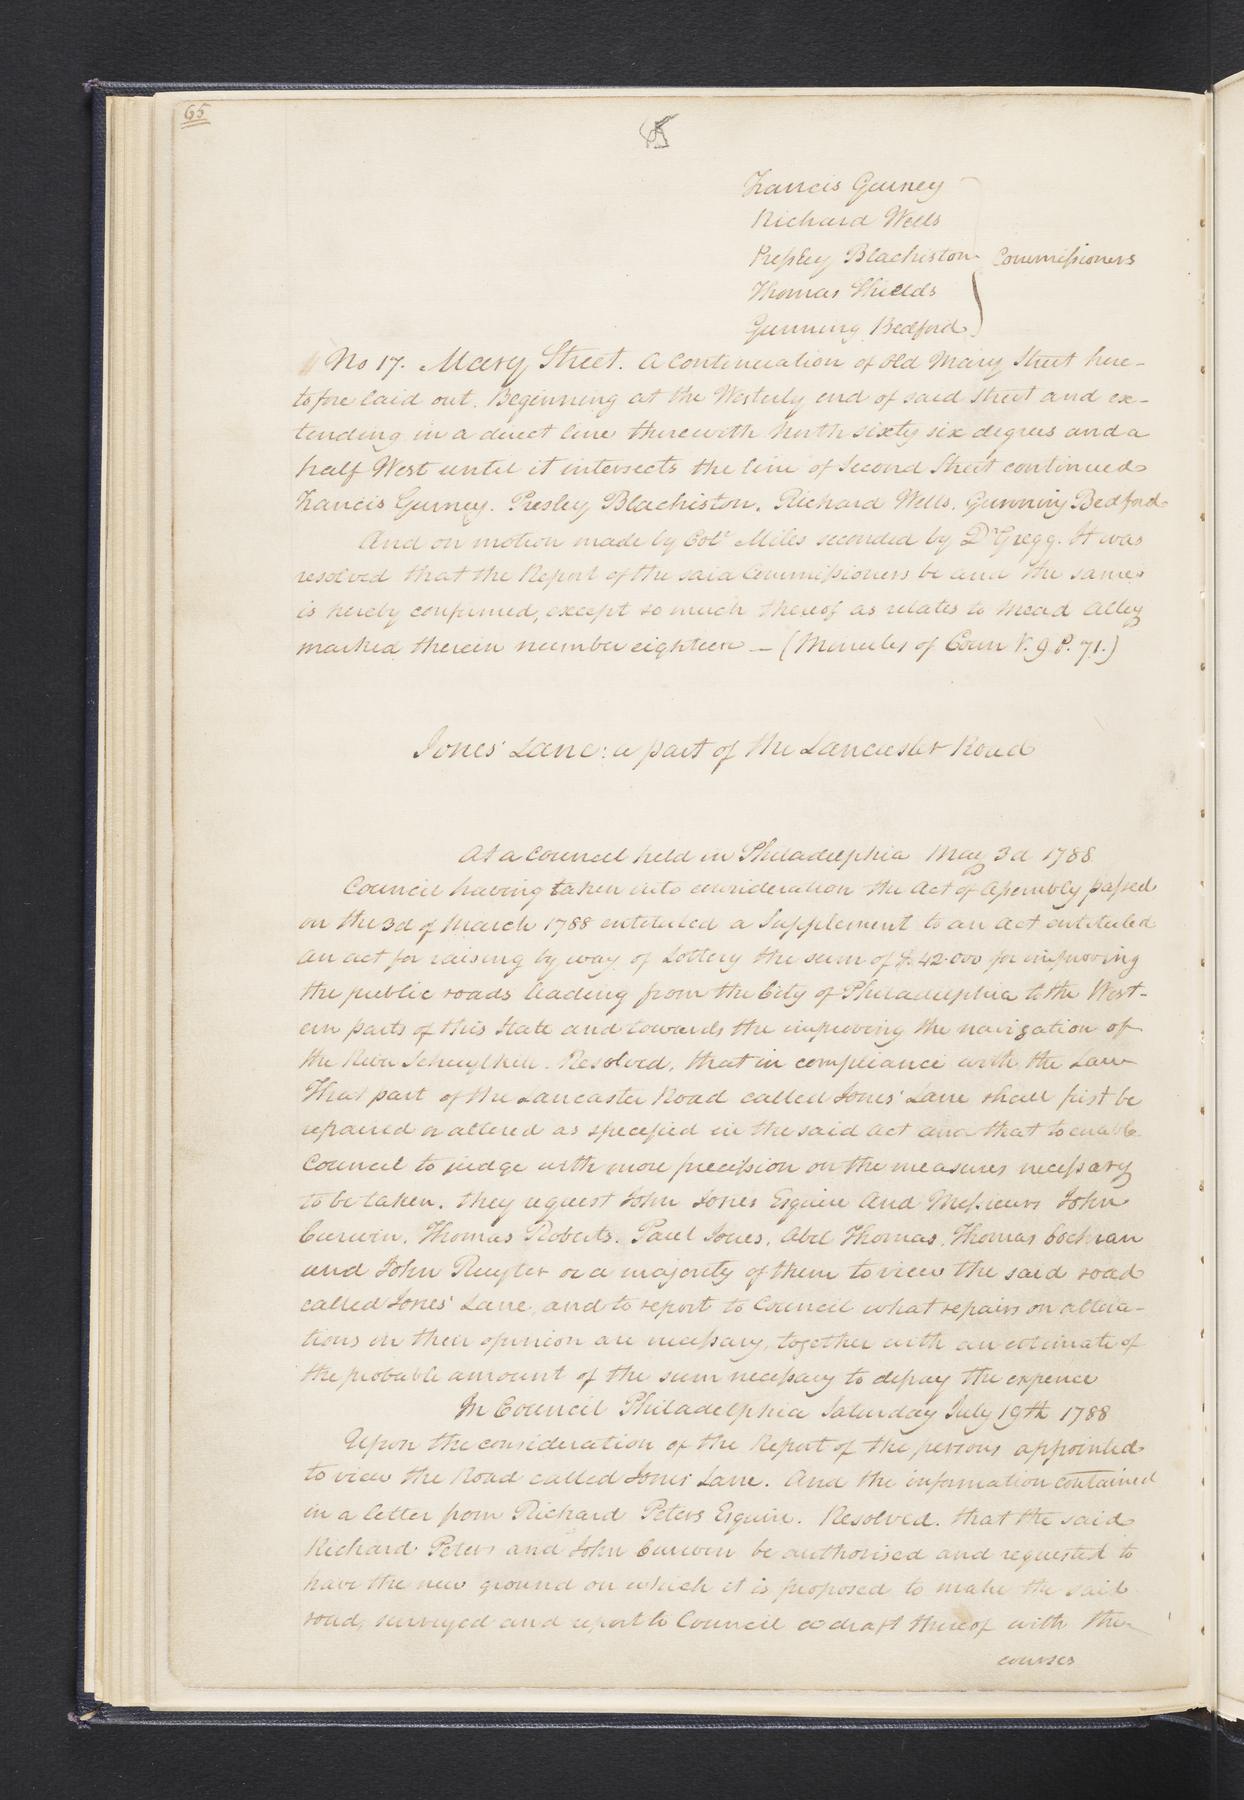 65
Francis Gurney
Richard Wells
Presley Blackiston Commissioners
Thomas Shields
Gunning Bedford
No 17. Mary Street. A Continuation of old Mary Street here-
tofore laid out. Beginning at the Westerly end of said Street and ex-
tending in a direct line therewith North sixty six degrees and a
half West until it intersects the line of Second Street continued
Francis Gurney. Presley Blackiston. Richard Wells. Gunning Bedford
And on motion made by Colo Miles seconded by Dr Gregg. It was
resolved that the Report of the said Commissioners be and the same
is hereby confirmed, except so much thereof as relates to Mead Alley
marked therein number eighteen — (Minutes of Coun V. 9 P. 71.)
Jones' Lane: a part of the Lancaster Road
At a Council held in Philadelphia May 3d 1788
Council having taken into consideration the Act of Assembly passed
on the 3d of March 1788 entituled a Supplement to an act entituled
an act for raising by way of Lottery the sum of $42.000 for improving
the public roads leading from the City of Philadelphia to the West-
ern parts of this State and towards the improving the navigation of
the River Schuylkill. Resolved, that in compliance with the Law
That part of the Lancaster Road called Jones' Lane shall first be
repaired or altered as specified in the said Act and that to enable
Council to judge with more precision on the measures necessary
to be taken. they request John Jones Esquire And Messieurs John
Curwin. Thomas Roberts. Paul Jones, Abel Thomas, Thomas Cochran
and John Ruyter or a majority of them to view the said road
called Jones' Lane, and to report to Council what repairs on altera-
tions in their opinion are necessary, together with an estimate of
the probable amount of the sum necessary to defray the expence
In Council Philadelphia Saturday July 19th 1788
Upon the consideration of the Report of the persons appointed
to view the Road called Jones' Lane. And the information contained
in a letter from Richard Peters Esquire. Resolved. that the said
Richard Peters and John Curwen be authorised and requested to
have the new ground on which it is proposed to make the said
road, surveyed and report to Council a draft thereof with the
courses